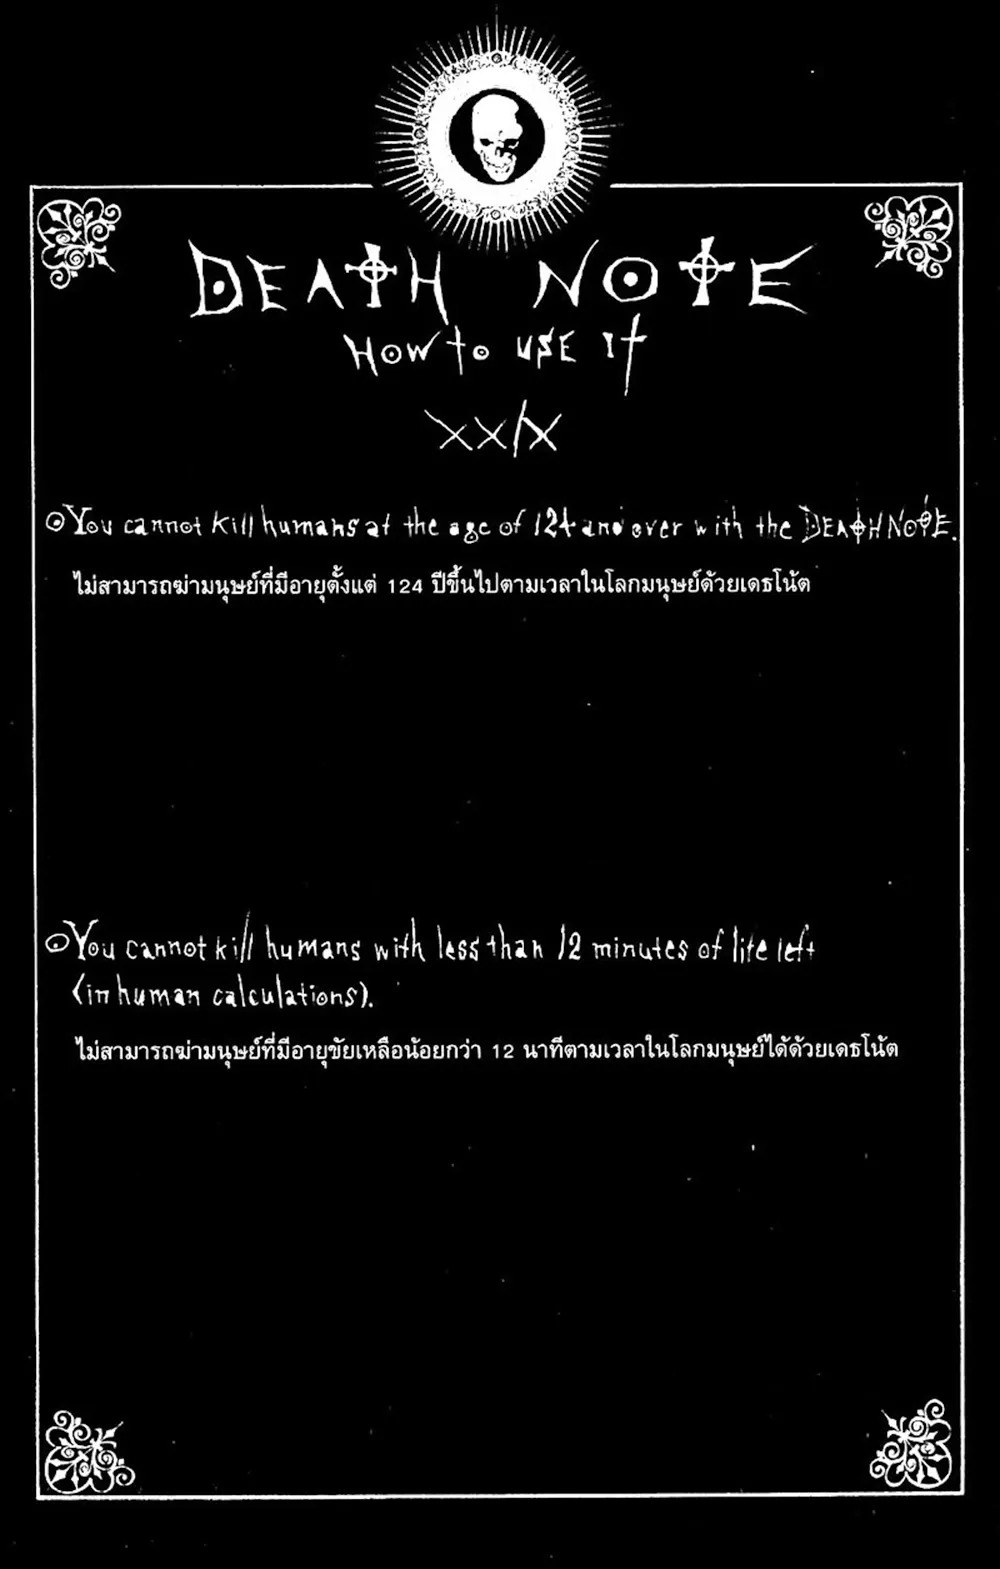 DEATH NOTE
HOW to USE It
XXIX
You cannot kill humans at the age of 124 and over with the DEATH NOTE.
ไม่สามารถฆ่ามนุษย์ที่มีอายุตั้งแต่ 124 ปีขึ้นไปตามเวลาในโลกมนุษย์ด้วยเดธโน้ต
You cannot kill humans with less than 12 minutes of life left
(in human calculations).
ไม่สามารถฆ่ามนุษย์ที่มีอายุขัยเหลือน้อยกว่า 12 นาทีตามเวลาในโลกมนุษย์ได้ด้วยเดธโน้ต